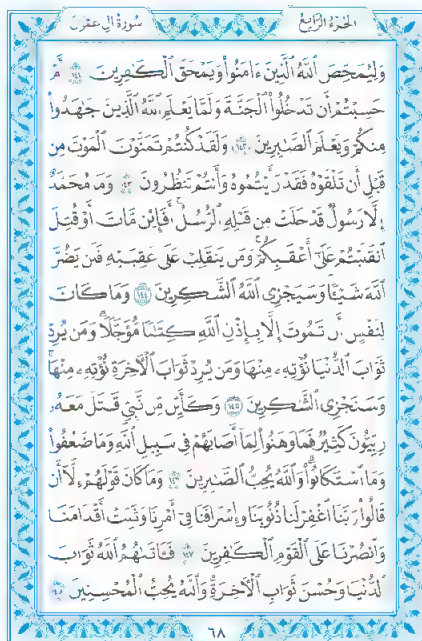 سورة آل عمران
الجزء الرابع
وَلِيُمَحِّصَ ٱللَّهُ ٱلَّذِينَ ءَامَنُوا۟ وَيَمْحَقَ ٱلْكَٰفِرِينَ ١٤١ أَمْ
حَسِبْتُمْ أَن تَدْخُلُوا۟ ٱلْجَنَّةَ وَلَمَّا يَعْلَمِ ٱللَّهُ ٱلَّذِينَ جَٰهَدُوا۟
مِنكُمْ وَيَعْلَمَ ٱلصَّٰبِرِينَ ١٤٢ وَلَقَدْ كُنتُمْ تَمَنَّوْنَ ٱلْمَوْتَ مِن
قَبْلِ أَن تَلْقَوْهُ فَقَدْ رَأَيْتُمُوهُ وَأَنتُمْ تَنظُرُونَ ١٤٣ وَمَا مُحَمَّدٌ
إِلَّا رَسُولٌ قَدْ خَلَتْ مِن قَبْلِهِ ٱلرُّسُلُ أَفَإِي۟ن مَّاتَ أَوْ قُتِلَ
ٱنقَلَبْتُمْ عَلَىٰٓ أَعْقَٰبِكُمْ وَمَن يَنقَلِبْ عَلَىٰ عَقِبَيْهِ فَلَن يَضُرَّ
ٱللَّهَ شَيْـًٔا وَسَيَجْزِى ٱللَّهُ ٱلشَّٰكِرِينَ ١٤٤ وَمَا كَانَ
لِنَفْسٍ أَن تَمُوتَ إِلَّا بِإِذْنِ ٱللَّهِ كِتَٰبًا مُّؤَجَّلًا وَمَن يُرِدْ
ثَوَابَ ٱلدُّنْيَا نُؤْتِهِۦ مِنْهَا وَمَن يُرِدْ ثَوَابَ ٱلْءَاخِرَةِ نُؤْتِهِۦ مِنْهَا
وَسَنَجْزِى ٱلشَّٰكِرِينَ ١٤٥ وَكَأَيِّن مِّن نَّبِىٍّ قَٰتَلَ مَعَهُۥ
رِبِّيُّونَ كَثِيرٌ فَمَا وَهَنُوا۟ لِمَآ أَصَابَهُمْ فِى سَبِيلِ ٱللَّهِ وَمَا ضَعُفُوا۟
وَمَا ٱسْتَكَانُوا۟ وَٱللَّهُ يُحِبُّ ٱلصَّٰبِرِينَ ١٤٦ وَمَا كَانَ قَوْلَهُمْ إِلَّآ أَن
قَالُوا۟ رَبَّنَا ٱغْفِرْ لَنَا ذُنُوبَنَا وَإِسْرَافَنَا فِىٓ أَمْرِنَا وَثَبِّتْ أَقْدَامَنَا
وَٱنصُرْنَا عَلَى ٱلْقَوْمِ ٱلْكَٰفِرِينَ ١٤٧ فَـَٔاتَىٰهُمُ ٱللَّهُ ثَوَابَ
ٱلدُّنْيَا وَحُسْنَ ثَوَابِ ٱلْءَاخِرَةِ وَٱللَّهُ يُحِبُّ ٱلْمُحْسِنِينَ ١٤٨
٦٨